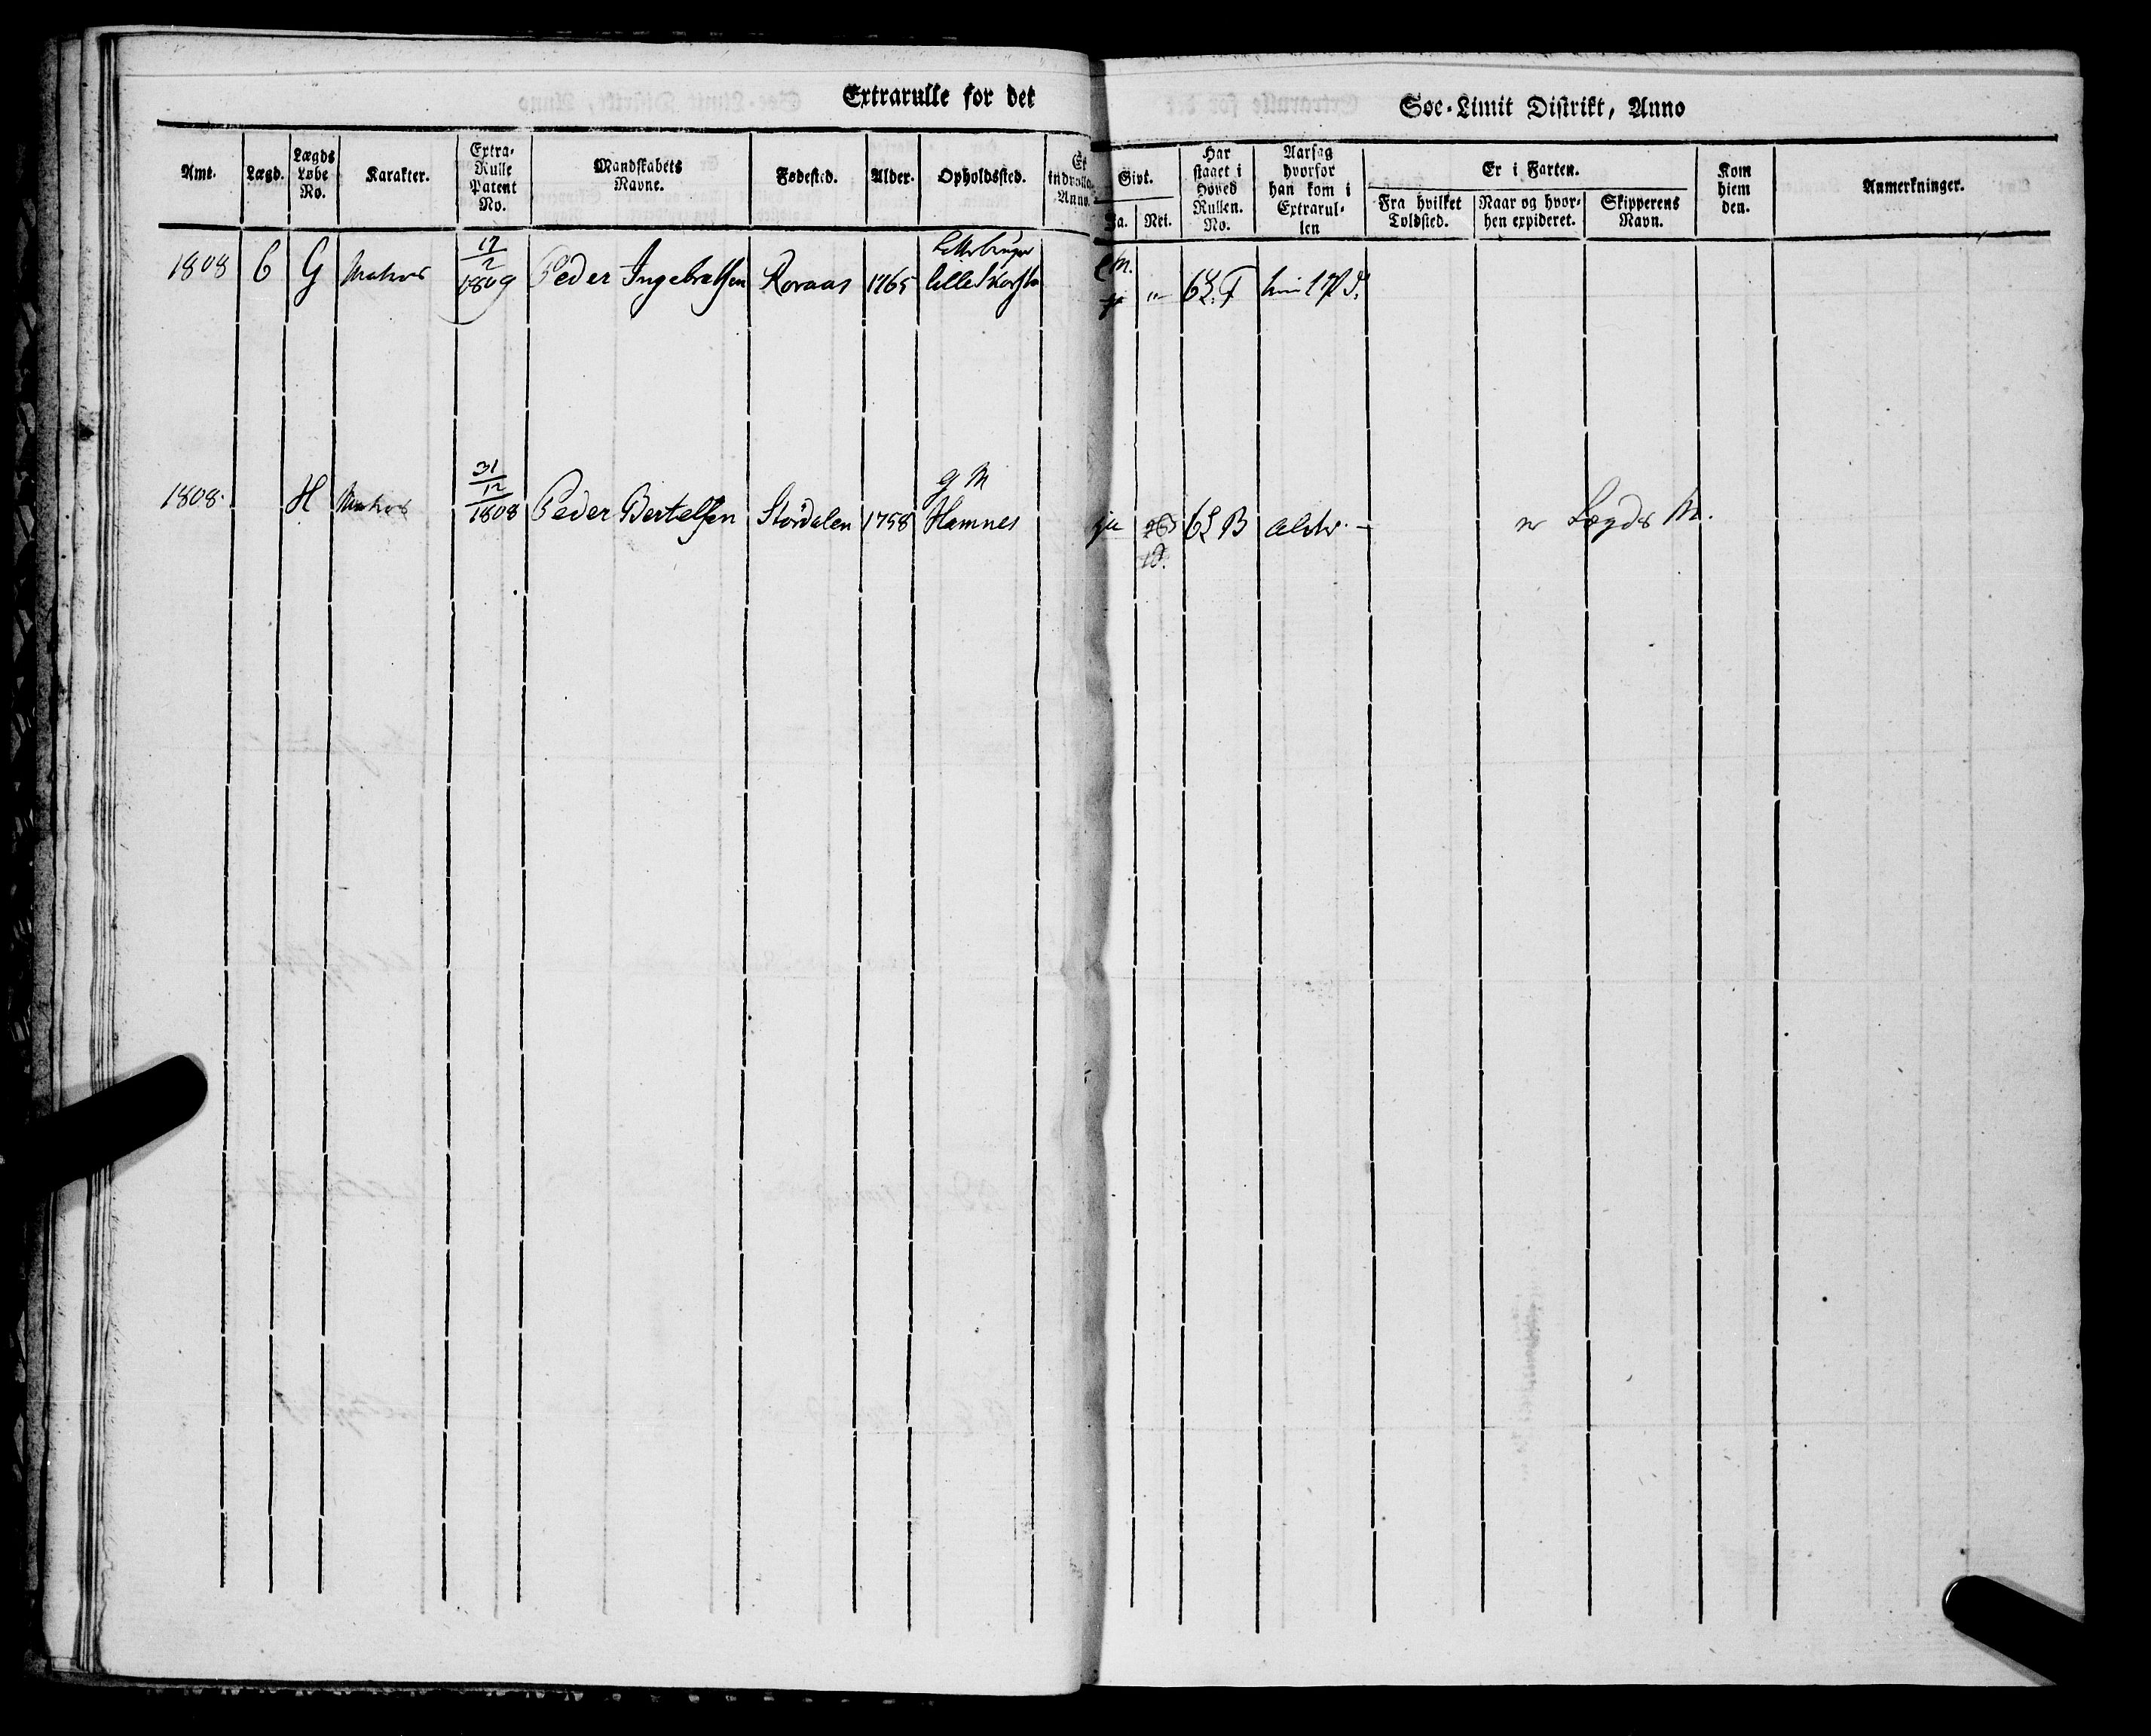 Extrarulle for det
Søe-Limit Distrikt, Anno
Amt.
Lægd.
Lægds
Løbe
No.
Karakter.
Extra-
Rulle
Patent
No.
Mandskabets
Navne.
Fødested.
Alder.
Opholdssted.
Er
indrolle-
Anno.
Givt.
Ja.
Nei.
Har
staaet i
Hoved
Rullen.
No.
Aarsag
hvorfor
han kom i
Extrarul-
len
Er i Farten.
Fra hvilket
Toldsted.
Naar og hvor-
hen expideret.
Skipperens
Navn.
Kom
hiem
den.
Anmerkninger.
1808 6 G 17/2 1809 Peder Ingebretsen Roraas 1765 Lille
1808. H 31/12 1808 Peder Bertelsen Stördalen 1758 g M
Hamnes
ja 6 L B Alder. Lægds M.